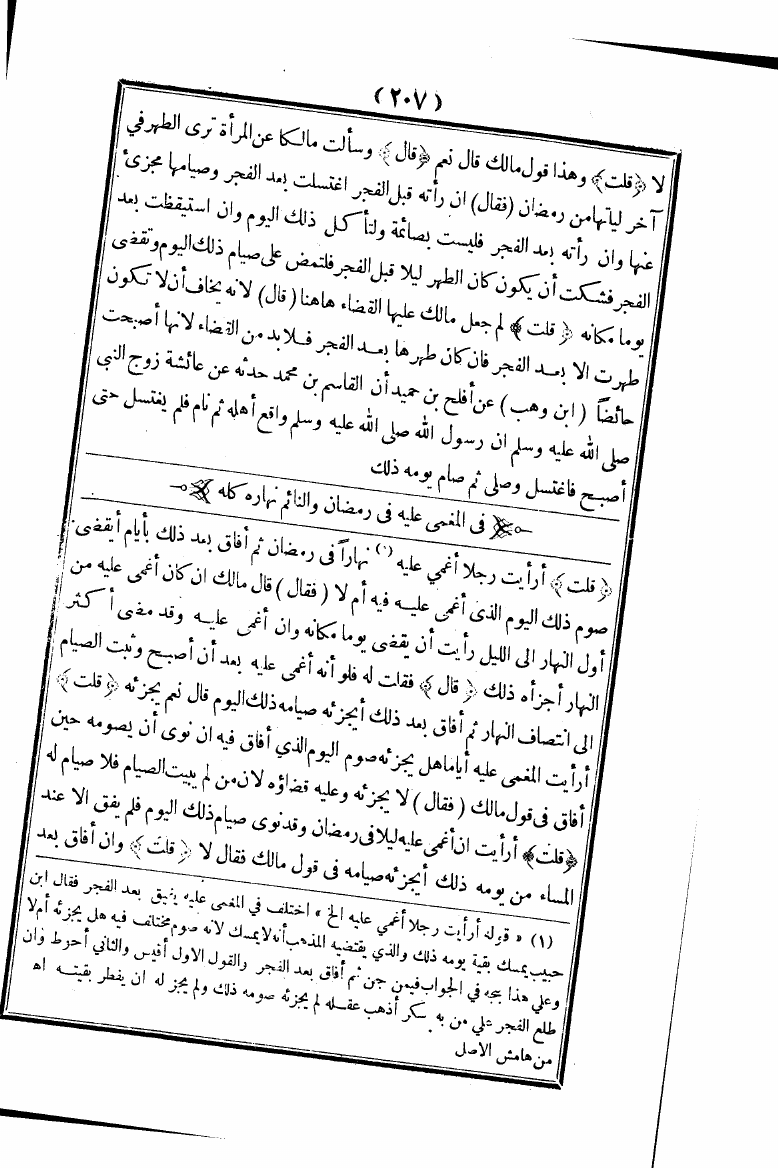 (٢٠٧)
لا ﴿قلت﴾ وهذا قول مالك قال نعم ﴿قال﴾ وسألت مالكا عن المرأة ترى الطهر في
آخر ليلتها من رمضان (فقال) ان رأته قبل الفجر اغتسلت بعد الفجر وصيامها مجزئ
عنها وان رأته بعد الفجر فليست بصائمة ولتأكل ذلك اليوم وان استيقظت بعد
الفجر فشكت أن يكون كان الطهر ليلا قبل الفجر فلتمض على صيام ذلك اليوم وتقضى
يوما مكانه ﴿قلت﴾ لم جعل مالك عليها القضاء هاهنا (قال) لانه يخاف أن لا تكون
طهرت الا بعد الفجر فان كان طهرها بعد الفجر فلا بد من القضاء لانها أصبحت
حائضاً (ابن وهب) عن أفلح بن حميد أن القاسم بن محمد حدثه عن عائشة زوج النبي
صلى الله عليه وسلم ان رسول الله صلى الله عليه وسلم واقع أهله ثم نام فلم يغتسل حتى
أصبح فاغتسل وصلى ثم صام يومه ذلك
في المغمى عليه في رمضان والنائم نهاره كله
﴿قلت﴾ أرأيت رجلا أغمي عليه (١) نهاراً في رمضان ثم أفاق بعد ذلك بأيام أيقضى
صوم ذلك اليوم الذى أغمى عليه فيه أم لا (فقال) قال مالك ان كان أغمى عليه من
أول النهار الى الليل رأيت أن يقضى يوما مكانه وان أغمى عليه وقد مضى أكثر
النهار أجزأه ذلك ﴿قال﴾ فقلت له فلو أنه أغمى عليه بعد أن أصبح ونيت الصيام
الى انتصاف النهار ثم أفاق بعد ذلك أيجزئه صيامه ذلك اليوم قال نعم يجزئه ﴿قلت﴾
أرأيت المغمى عليه أياما هل يجزئه صوم اليوم الذي أفاق فيه ان نوى أن يصومه حين
أفاق في قول مالك (فقال) لا يجزئه وعليه قضاؤه لان من لم يبيت الصيام فلا صيام له
﴿قلت﴾ أرأيت ان أغمى عليه ليلا في رمضان وقد نوى صيام ذلك اليوم فلم يفق الا عند
المساء من يومه ذلك أيجزئه صيامه في قول مالك فقال لا ﴿قلت﴾ وان أفاق بعد
(١) « قوله أرأيت رجلا أغمي عليه الخ » اختلف في المغمى عليه يفيق بعد الفجر فقال ابن
حبيب يمسك بقية يومه ذلك والذي يقتضيه المذهب أنه لا يمسك لانه صوم مختلف فيه هل يجزئه أم لا
وعلي هذا يجه في الجواب فيمن جن ثم أفاق بعد الفجر والقول الاول أقيس والثاني أحوط وان
طلع الفجر علي من به سكر أذهب عقله لم يجزئه صومه ذلك ولم يجز له ان يفطر بقيته اه
من هامش الاصل